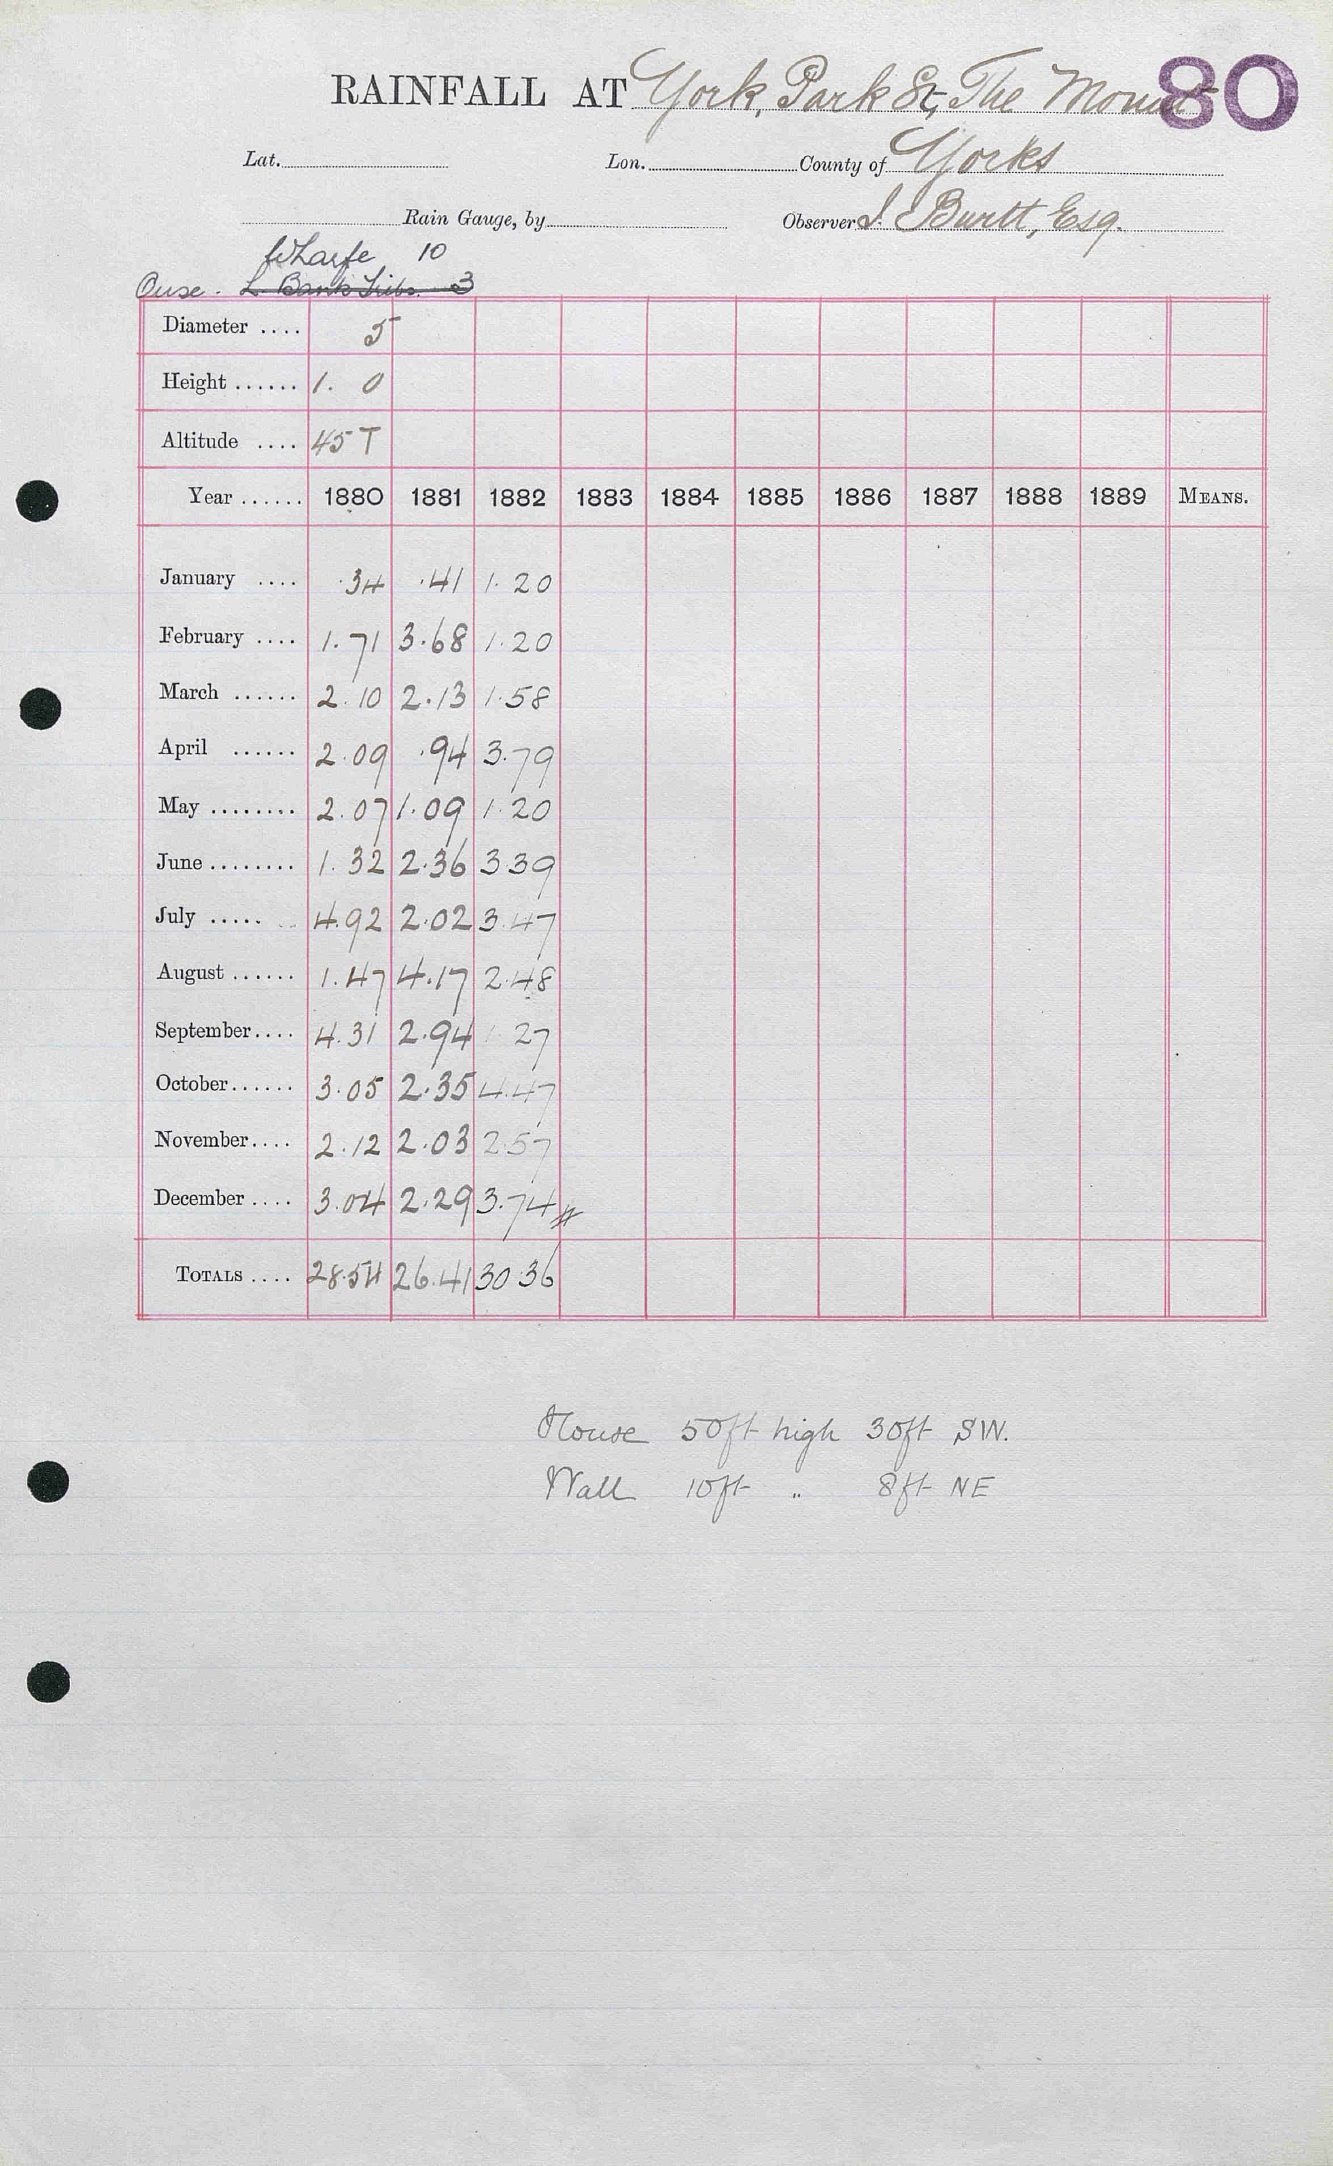 RAINFALL AT York, Park St, The Mount 80
Lat. Lon. County of Yorks
Rain Gauge, by Observer I. Burtt, Esq.
Wharfe 10
Ouse - L. Bank Tribs. 3
Diameter .... 5
Height ...... 1. 0
Altitude .... 45 T
Year ...... 1880 1881 1882 1883 1884 1885 1886 1887 1888 1889 MEANS.
January .... .34 .41 1.20
February .... 1.71 3.68 1.20
March ...... 2.10 2.13 1.58
April ...... 2.09 .94 3.79
May ........ 2.07 1.09 1.20
June ........ 1.32 2.36 3.39
July ..... .. 4.92 2.02 3.47
August ...... 1.47 4.17 2.48
September.... 4.31 2.94 1.27
October...... 3.05 2.35 4.47
November.... 2.12 2.03 2.57
December .... 3.04 2.29 3.74 #
TOTALS .... 28.54 26.41 30.36
House 50ft high 30ft SW.
Wall 10ft " 8ft NE